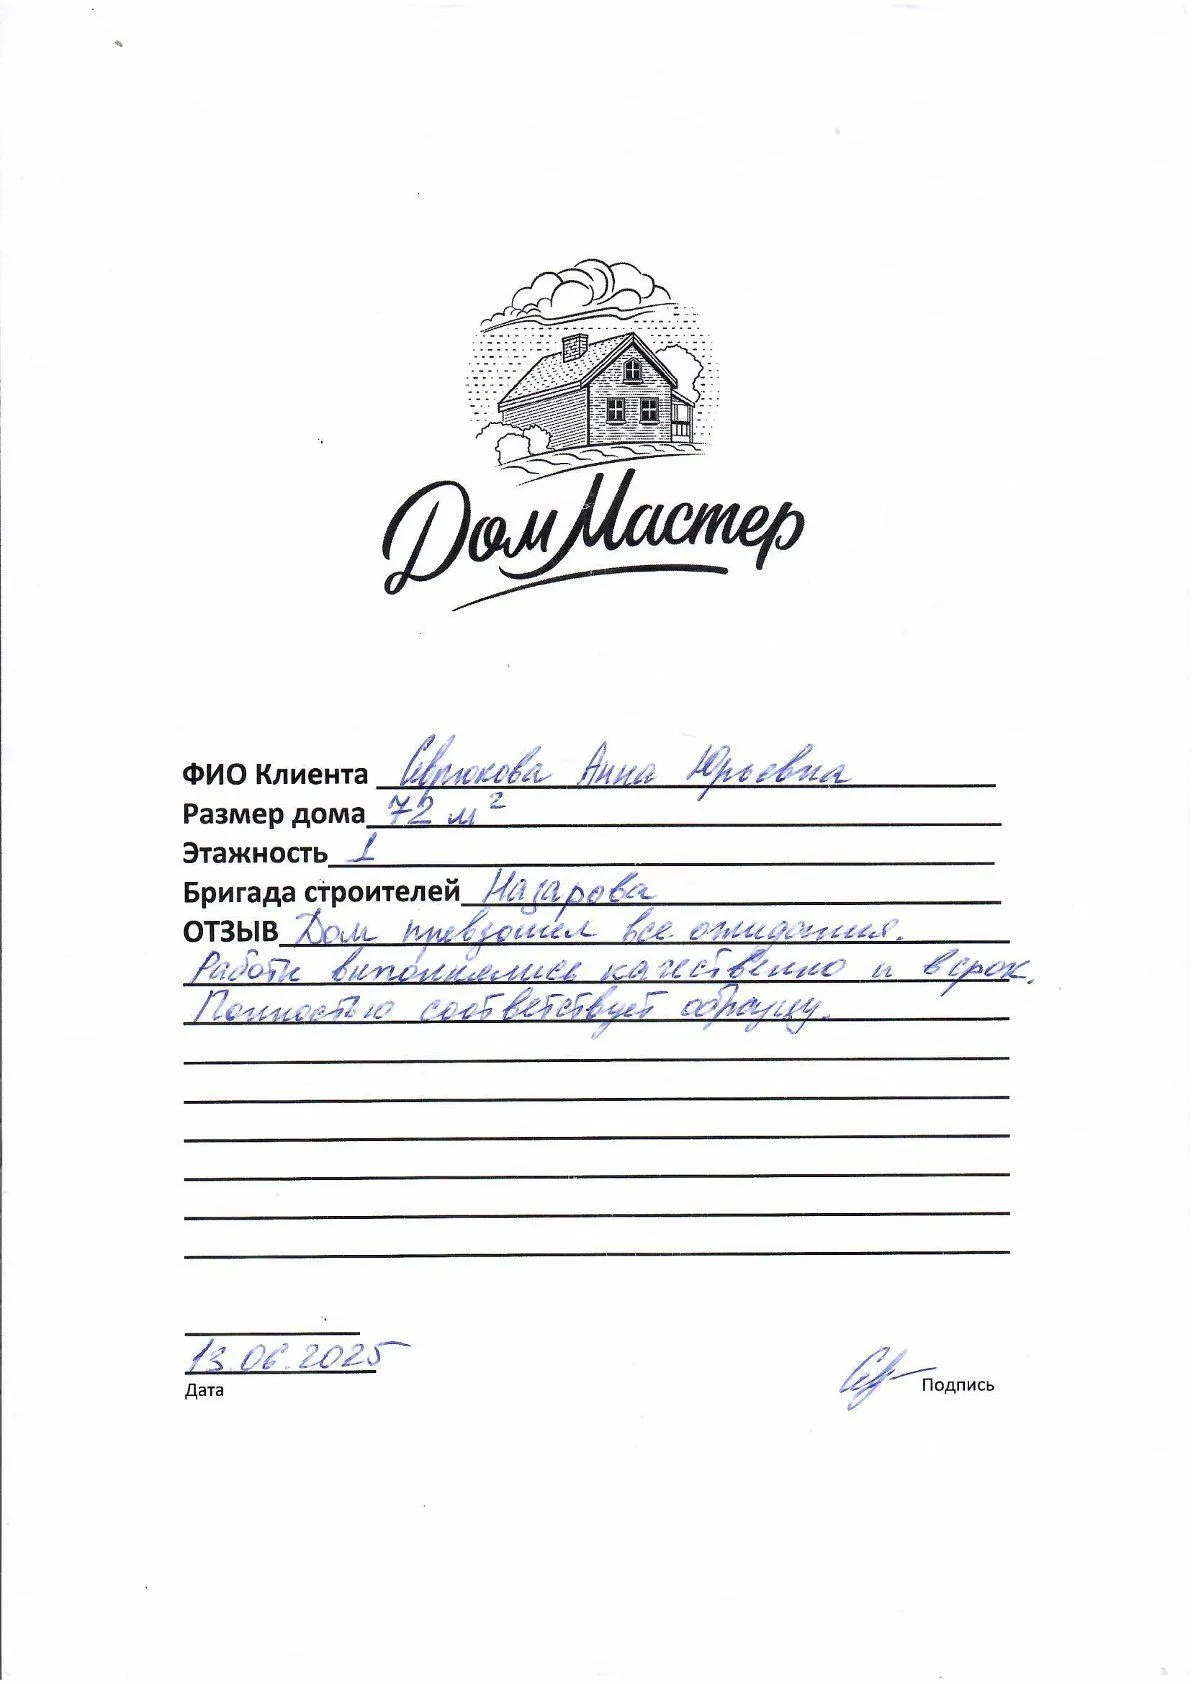 Дом Мастер
ФИО Клиента Севрюкова Анна Юрьевна
Размер дома 72 м²
Этажность 1
Бригада строителей Назарова
ОТЗЫВ Дом превзошел все ожидания.
Работы выполнялись качественно и в срок.
Полностью соответствует образцу.
13.06.2025
Дата
Подпись